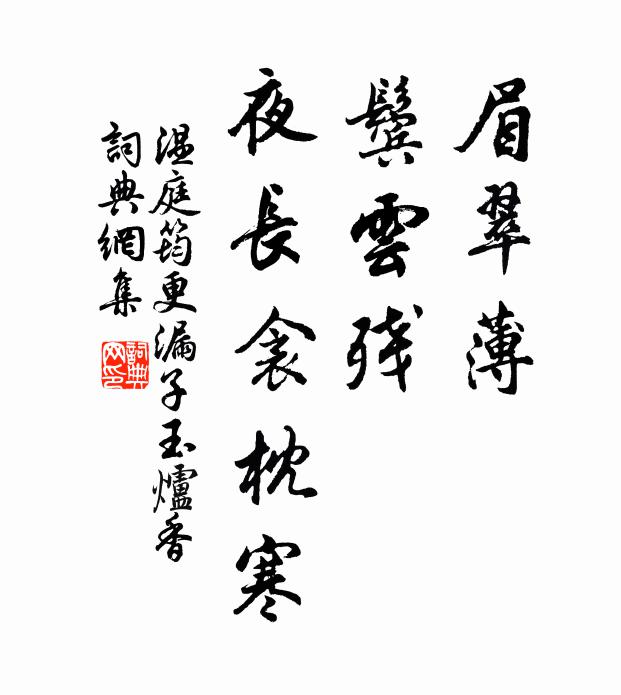 眉翠薄
鬢雲殘
夜長衾枕寒
溫庭筠更漏子玉爐香
詞典網集
詞典網印